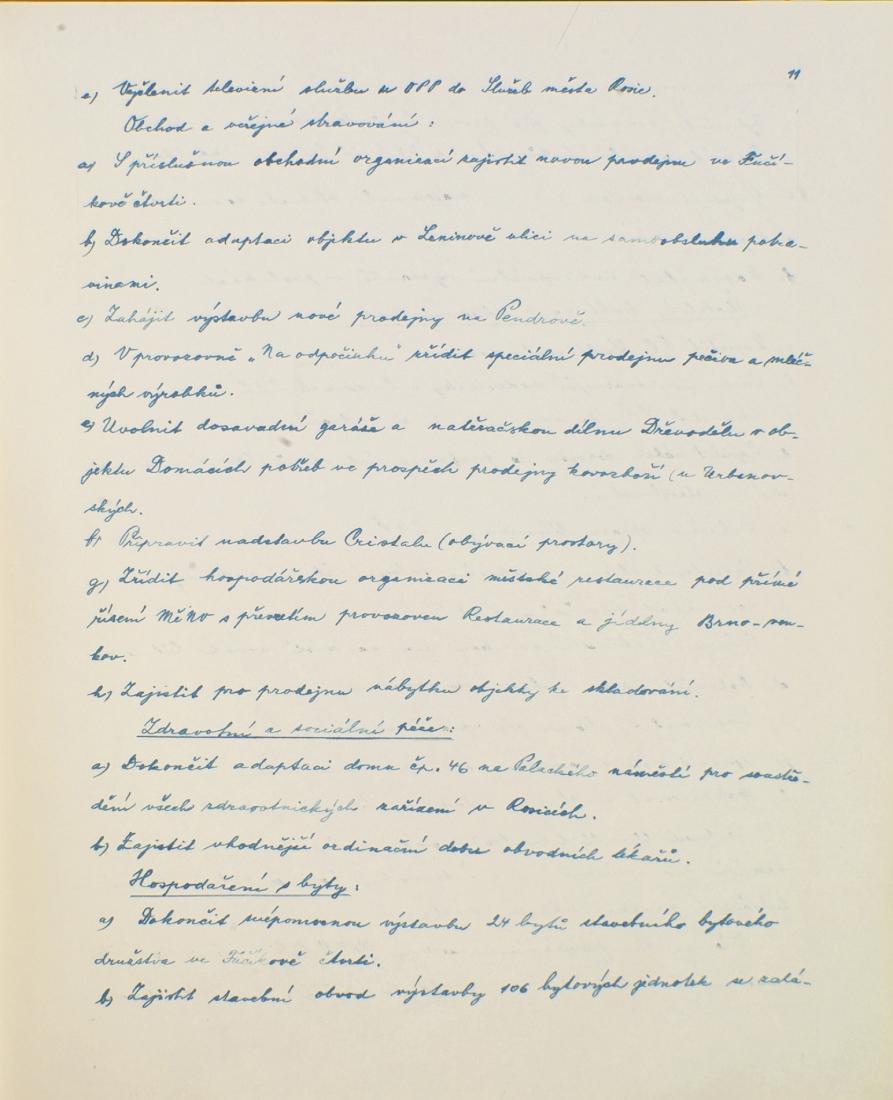 11
e) Vyčlenit televizní službu u OPP do Služeb města Rosic.
Obchod a veřejné stravování:
a) S příslušnou obchodní organizací zajistit novou prodejnu ve Fučí-
kově čtvrti.
b) Dokončit adaptaci objektu v Leninově ulici na samoobsluhu potra-
vinami.
c) Zahájit výstavbu nové prodejny na Pendrově.
d) V provozovně „Na odpočinku" zřídit speciální prodejnu pečiva a mléč-
ných výrobků.
e) Uvolnit dosavadní garáže a natěračskou dílnu Dřevodělu v ob-
jektu Domácích potřeb ve prospěch prodejny kovozboží (u Urbanov-
ských.
f) Připravit nadstavbu Cristalu (obývací prostory).
g) Zřídit hospodářskou organizaci městské restaurace pod přímé
řízení MěNV s převzetím provozoven Restaurace a jídelny Brno-ven-
kov.
h) Zajistit pro prodejnu nábytku objekty ke skladování.
Zdravotní a sociální péče:
a) Dokončit adaptaci domu čp. 46 na Palackého náměstí pro soustře-
dění všech zdravotnických zařízení v Rosicích.
b) Zajistit vhodnější ordinační dobu obvodních lékařů.
Hospodaření s byty:
a) Dokončit svépomocnou výstavbu 24 bytů stavebního bytového
družstva ve Fučíkově čtvrti.
b) Zajistit stavební obvod výstavby 106 bytových jednotek se zalá-